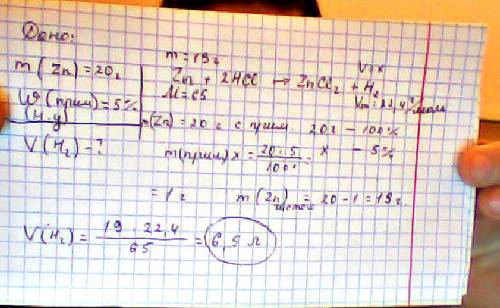 Дано:
m(Zn)=20г
W(прим)=5%
(н.у)
V(H₂)-?
m=19г V=x
Zn + 2HCl → ZnCl₂ + H₂
M=65 Vm=22,4 л/моль
m(Zn)=20 г с прим. 20г - 100%
x - 5%
m(прим) x = 20·5/100 =
= 1 г m(Zn)чистого = 20-1=19г.
V(H₂) = 19·22,4/65 = 6,5 л